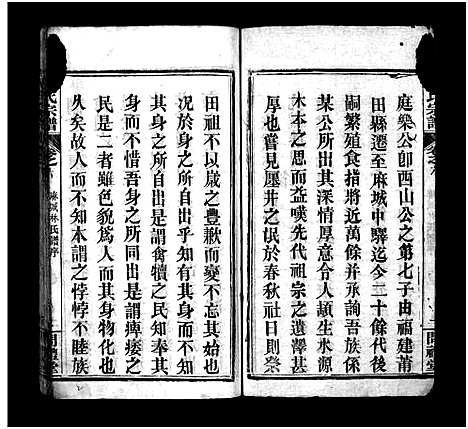 庭樂公卽西山公之第七子由福建莆
田縣遷至麻城中驛迄今二十餘代後
嗣繁殖食指將近萬餘并承詢吾族係
某公所出其深情厚意令人頓生水源
木本之思而益嘆先代祖宗之遺澤甚
厚也嘗見廛井之氓於春秋社日則祭
田祖不以歲之豐歉而變不忘其始也
況於身之所自出乎知有其身而不知
其身之所自出是謂禽犢之民知奉其
身而不惜吾身之所同出是謂痺痿之
民是二者雖色貌爲人而其身物化也
久矣故人而不知本謂之悖悖不睦族
氏宗譜
麻城林氏譜序